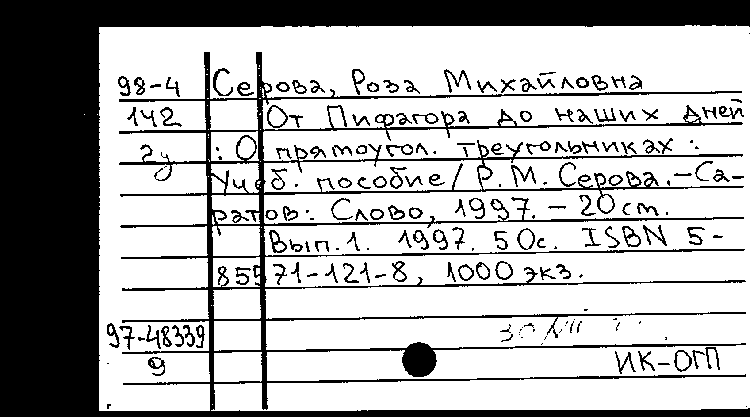 98-4 Серова, Роза Михайловна
142 От Пифагора до наших дней
2у : О прямоугол. треугольниках :
Учеб. пособие / Р. М. Серова. – Са-
ратов: Слово, 1997. – 20 см.
Вып. 1. 1997. 50с. ISBN 5-
85571-121-8, 1000 экз.
97-48339
9 ИК-ОГП